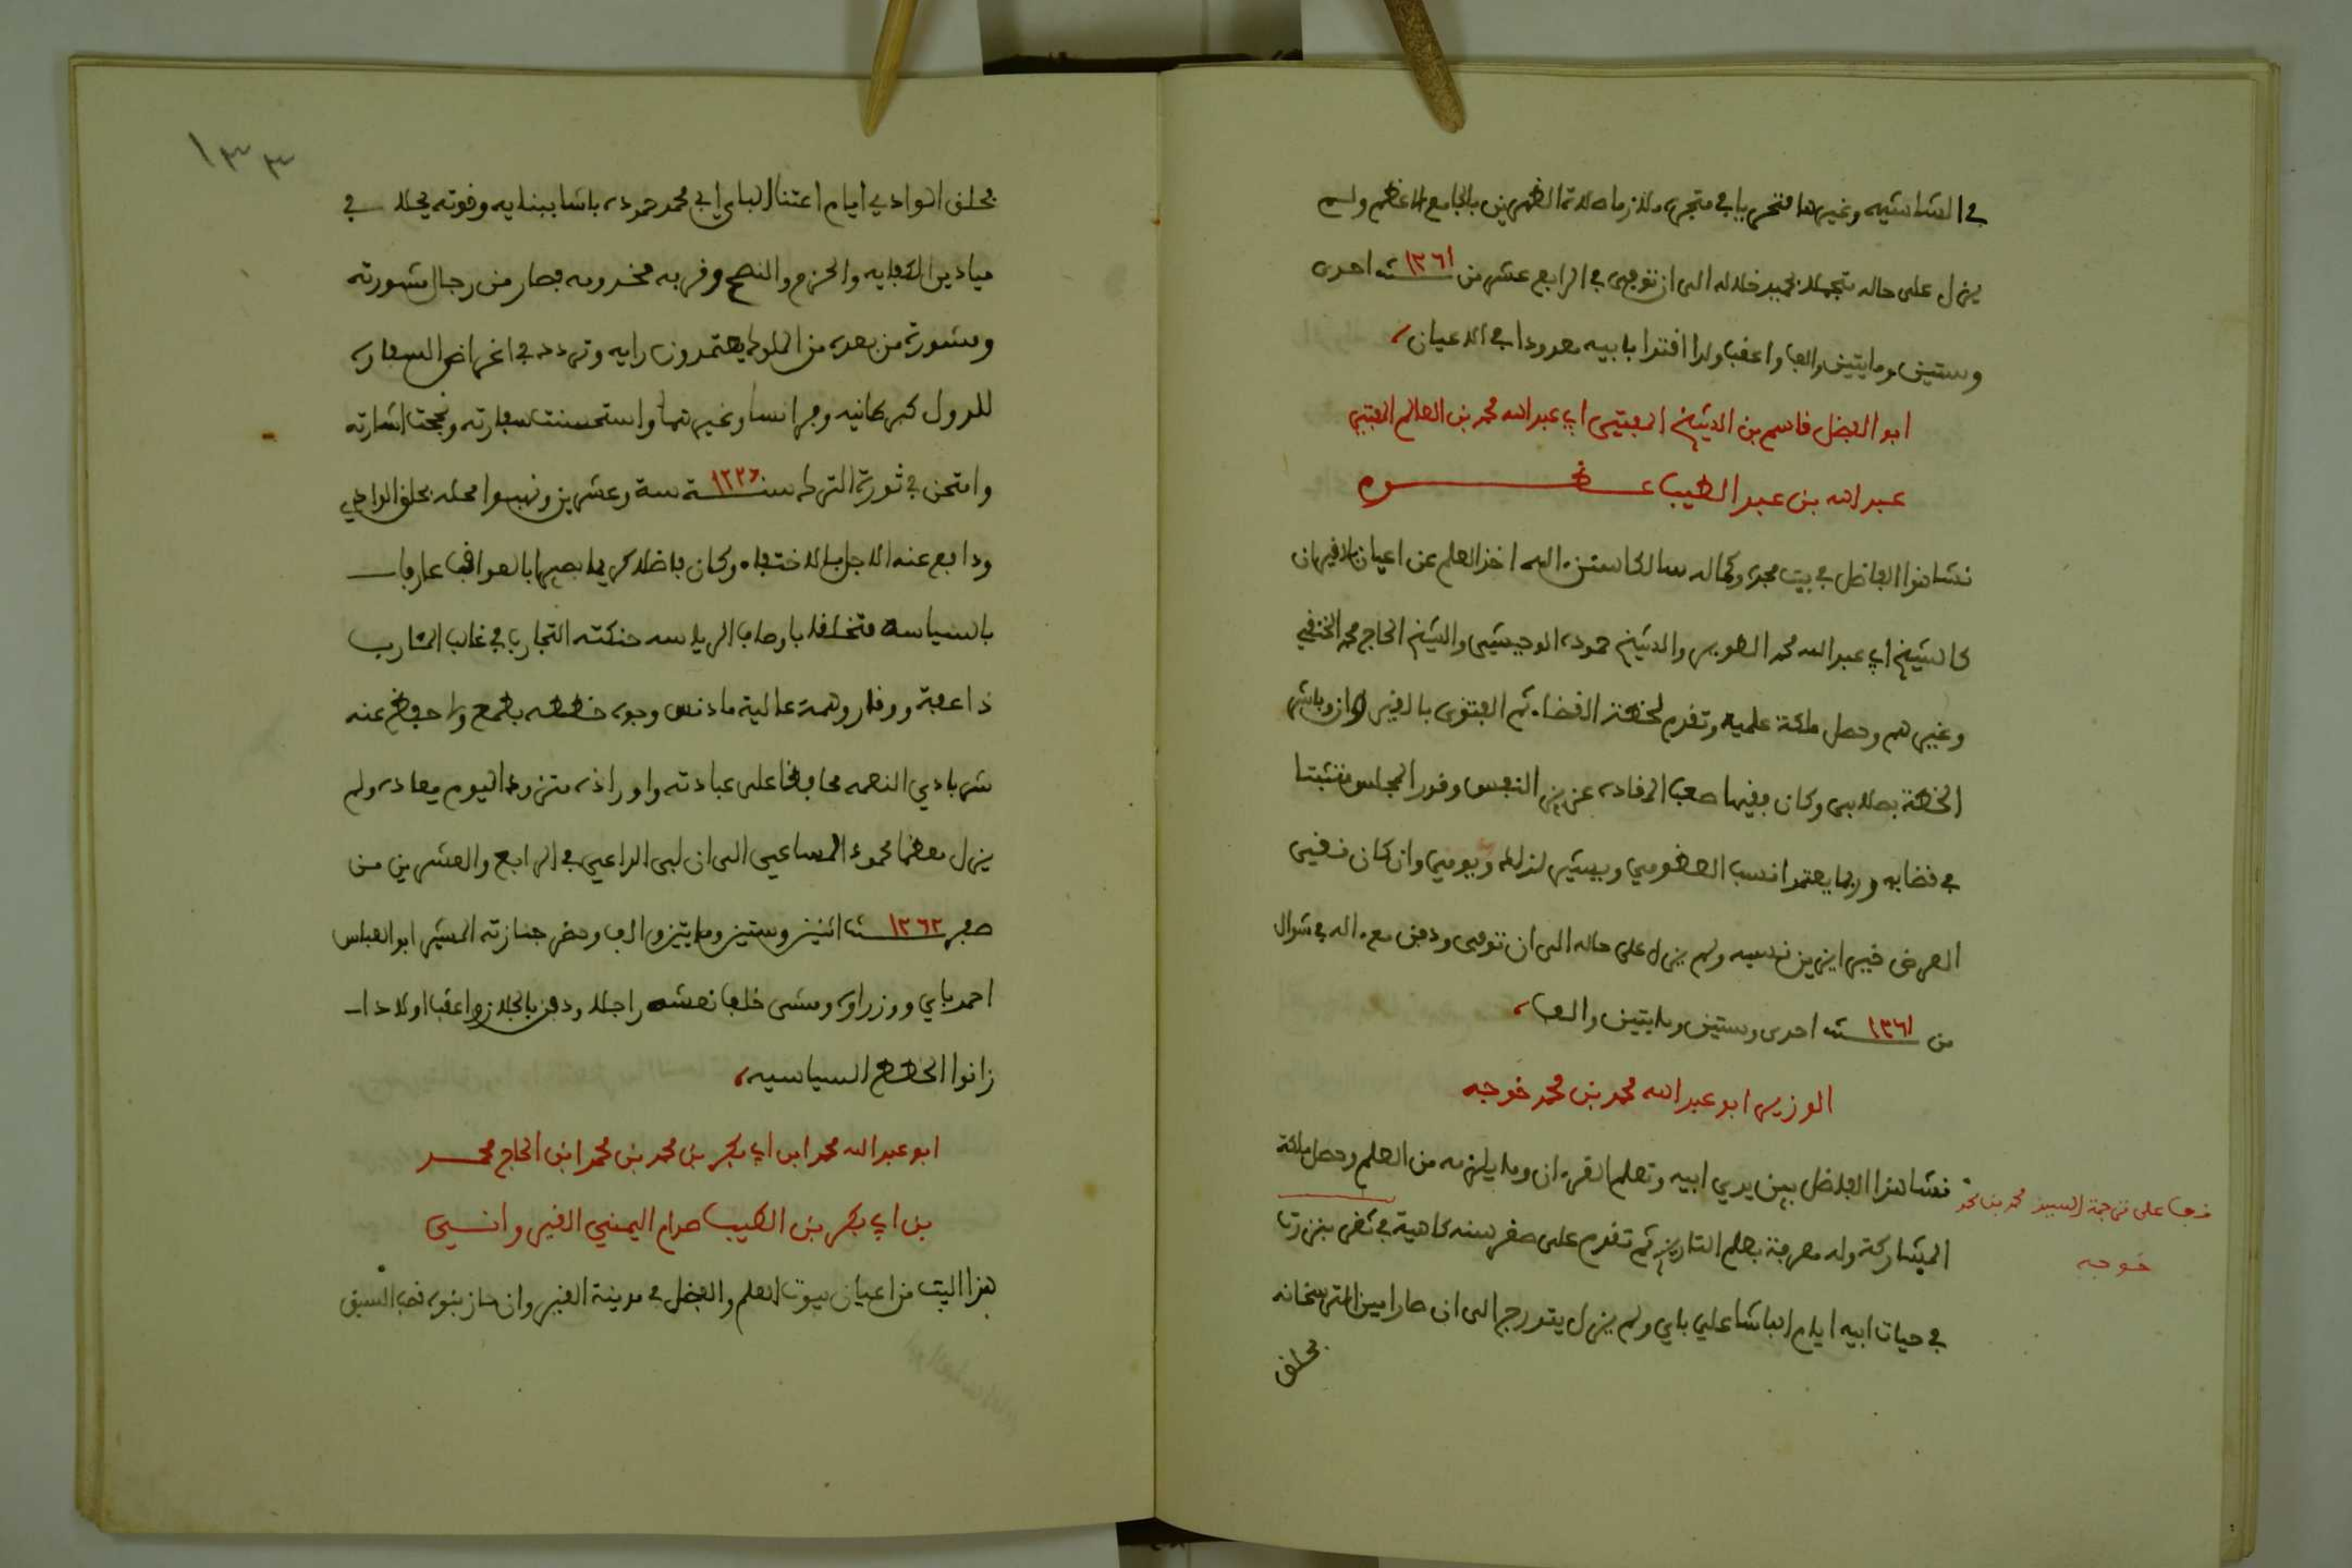 في الشاشيه وغيرها فتحر بابي متجره ملازما صلاة الظهرين بالجامع الاعظم ولم
يزل على حاله متجملا بحميد خلاله الى ان توفي في الرابع عشر من ١٢٦١ سنه احدى
وستين ومايتين والف واعقب ولدا اقتدا بابيه معدودا في الاعيان
ابو الفضل قاسم بن الشيخ المفتي ابي عبد الله محمد بن العالم المفتي
عبد الله بن عبد الطيب عظوم
نشا هذا الفاضل في بيت مجده وكماله سالكا سنن اله اخذ العلم عن اعيان بالقيروان
كالشيخ ابي عبد الله محمد الصويس والشيخ حموده الوحيشي والشيخ الحاج محمد الخنفي
وغيرهم وحصل ملكة علميه وتقدم لخطة القضاء ثم الفتوى بالقيروان وباشر
الخطة بصلابه وكان فقيها صعب المقاده عزيز النفس وقور المجلس متثبتا
في قضايه وربما يعتمد انسب العظومي ويشير لذلك ويومي وان كان نقي
العرض خير ابن بن نفسه ولم يزل على حاله الى ان توفي ودفن مع اله في شوال
من ١٢٦١ سنه احدى وستين ومايتين والف
الوزير ابو عبد الله محمد بن محمد خوجه
نشا هذا الفاضل بين يدي ابيه وتعلم القرءان وما يلزمه من العلم وحصل ملكة
قف على ترجمة السيد محمد بن محمد
خوجه
المشاركة وله معرفة بعلم التاريخ ثم تقدم على صغر سنه كاهية في ثغر بنزرت
في حيات ابيه ايام الباشا علي باي ولم يزل يتدرج الى ان صار امين الترسخانه
بحلق
١٣٣
بحلق الوادي ايام اعتنا الباي ابي محمد حموده باشا ببنايه وقوته فجلا في
ميادين الكفايه والحزم والنصح وقربه مخدومه فصار من رجال مشورته
ومشورة من بعده من الملوك يعتمدون رايه وتردد في اغراض السفاره
للدول كبركانيه وفرانسا وغيرتهما واستحسنت سفارته ونجحت اشارته
وامتحن في ثورة الترك سنة ١٢٢٦ ستة وعشرين ونهبوا محله بحلق الوادي
ودافع عنه الاجل بالاختفاء وكان فاضلا كريما بصيرا بالعواقب عارفا
بالسياسة متخلقا باوصاف الرياسه حنكته التجارب في غالب المشارب
ذا عفة ووقار وهمة عالية ما دنس وجوه خططه بطمع ولا حفظ عنه
شر بادي النعمه محافظا على عبادته واوراده متزودا ليوم معاده ولم
يزل معظما محمود المساعي الى ان لبى الداعي في الرابع والعشرين من
صفر ١٢٦٢ سنة اثنين وستين ومايتين والف وحضر جنازته المشير ابو العباس
احمد باي ووزراوه ومشى خلف نعشه راجلا ودفن بالجلاز واعقب اولادا
زانوا الخطط السياسيه
ابو عبد الله محمد ابن ابي بكر بن محمد بن محمد ابن الحاج محمد
بن ابي بكر بن الطيب صدام اليمني القيرواني
هذا البيت من اعيان بيوت العلم والفضل في مدينة القيروان حاز بنوه قصب السبق